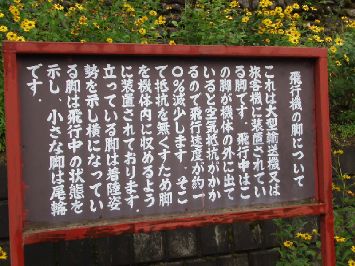 飛行機の脚について
これは大型輸送機又は
旅客機に装置されてい
る脚です。飛行中はこ
の脚が機体の外に出て
いると空気抵抗がかか
るので飛行速度が約一
〇%減少します。そこ
で抵抗を無くすため脚
を機体内に収めるよう
に装置されております。
立っている脚は着陸姿
勢を示し横になってい
る脚は飛行中の状態を
示し、小さな脚は尾輪
です。